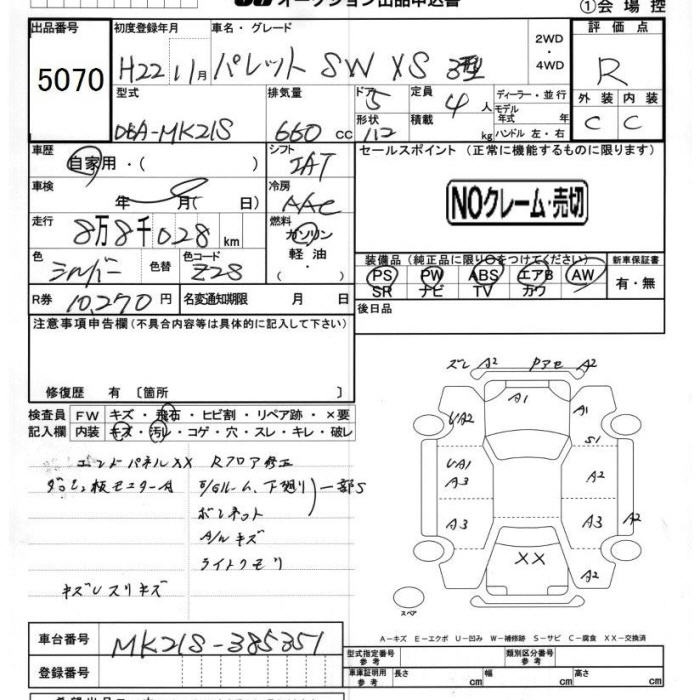 オークション出品申込書 ①会場控
出品番号 初度登録年月 車名・グレード 2WD・4WD 評価点
5070 H22 11月 パレット SW XS 3型 R
型式 排気量 ドア 定員 ディーラー・並行 外装 内装
DBA-MK21S 660 cc 5 4人 モデル年式 年 C C
形状 積載 kg ハンドル 左・右
車歴 シフト セールスポイント (正常に機能するものに限ります)
自家用・( ) IAT
車検 年 月( 日) 冷房 AAC NOクレーム・売切
走行 8万8千028km 燃料 ガソリン・軽油・
色 シルバー 色替 色コード Z2S 装備品(純正品に限り○をつけてください) 新車保証書
PS PW ABS エアB AW 有・無
SR ナビ TV カワ
R券 10,270円 名変通知期限 月 日 後日品
注意事項申告欄(不具合内容等は具体的に記入して下さい)
修復歴 有 〔箇所 〕
検査員 FW キズ・飛石・ヒビ割・リペア跡・×要
記入欄 内装 キズ・汚レ・コゲ・穴・スレ・キレ・破レ
エンドパネルXX Rフロア修正
E/Gルーム、下廻り 一部S
ボンネット
A/Wキズ
ライトクモリ
キズUスリキズ
ズレ A2 A2
A1
UA2 A1
S1
UA1
A3 A2
A3 A3 A2
XX
A2
スペア
A-キズ E-エクボ U-凹み W-補修跡 S-サビ C-腐食 XX-交換済
車台番号 MK21S-385351
型式指定番号 参考 類別区分番号 参考
登録番号 車庫証明用 参考 長さ cm 幅 cm 高さ cm